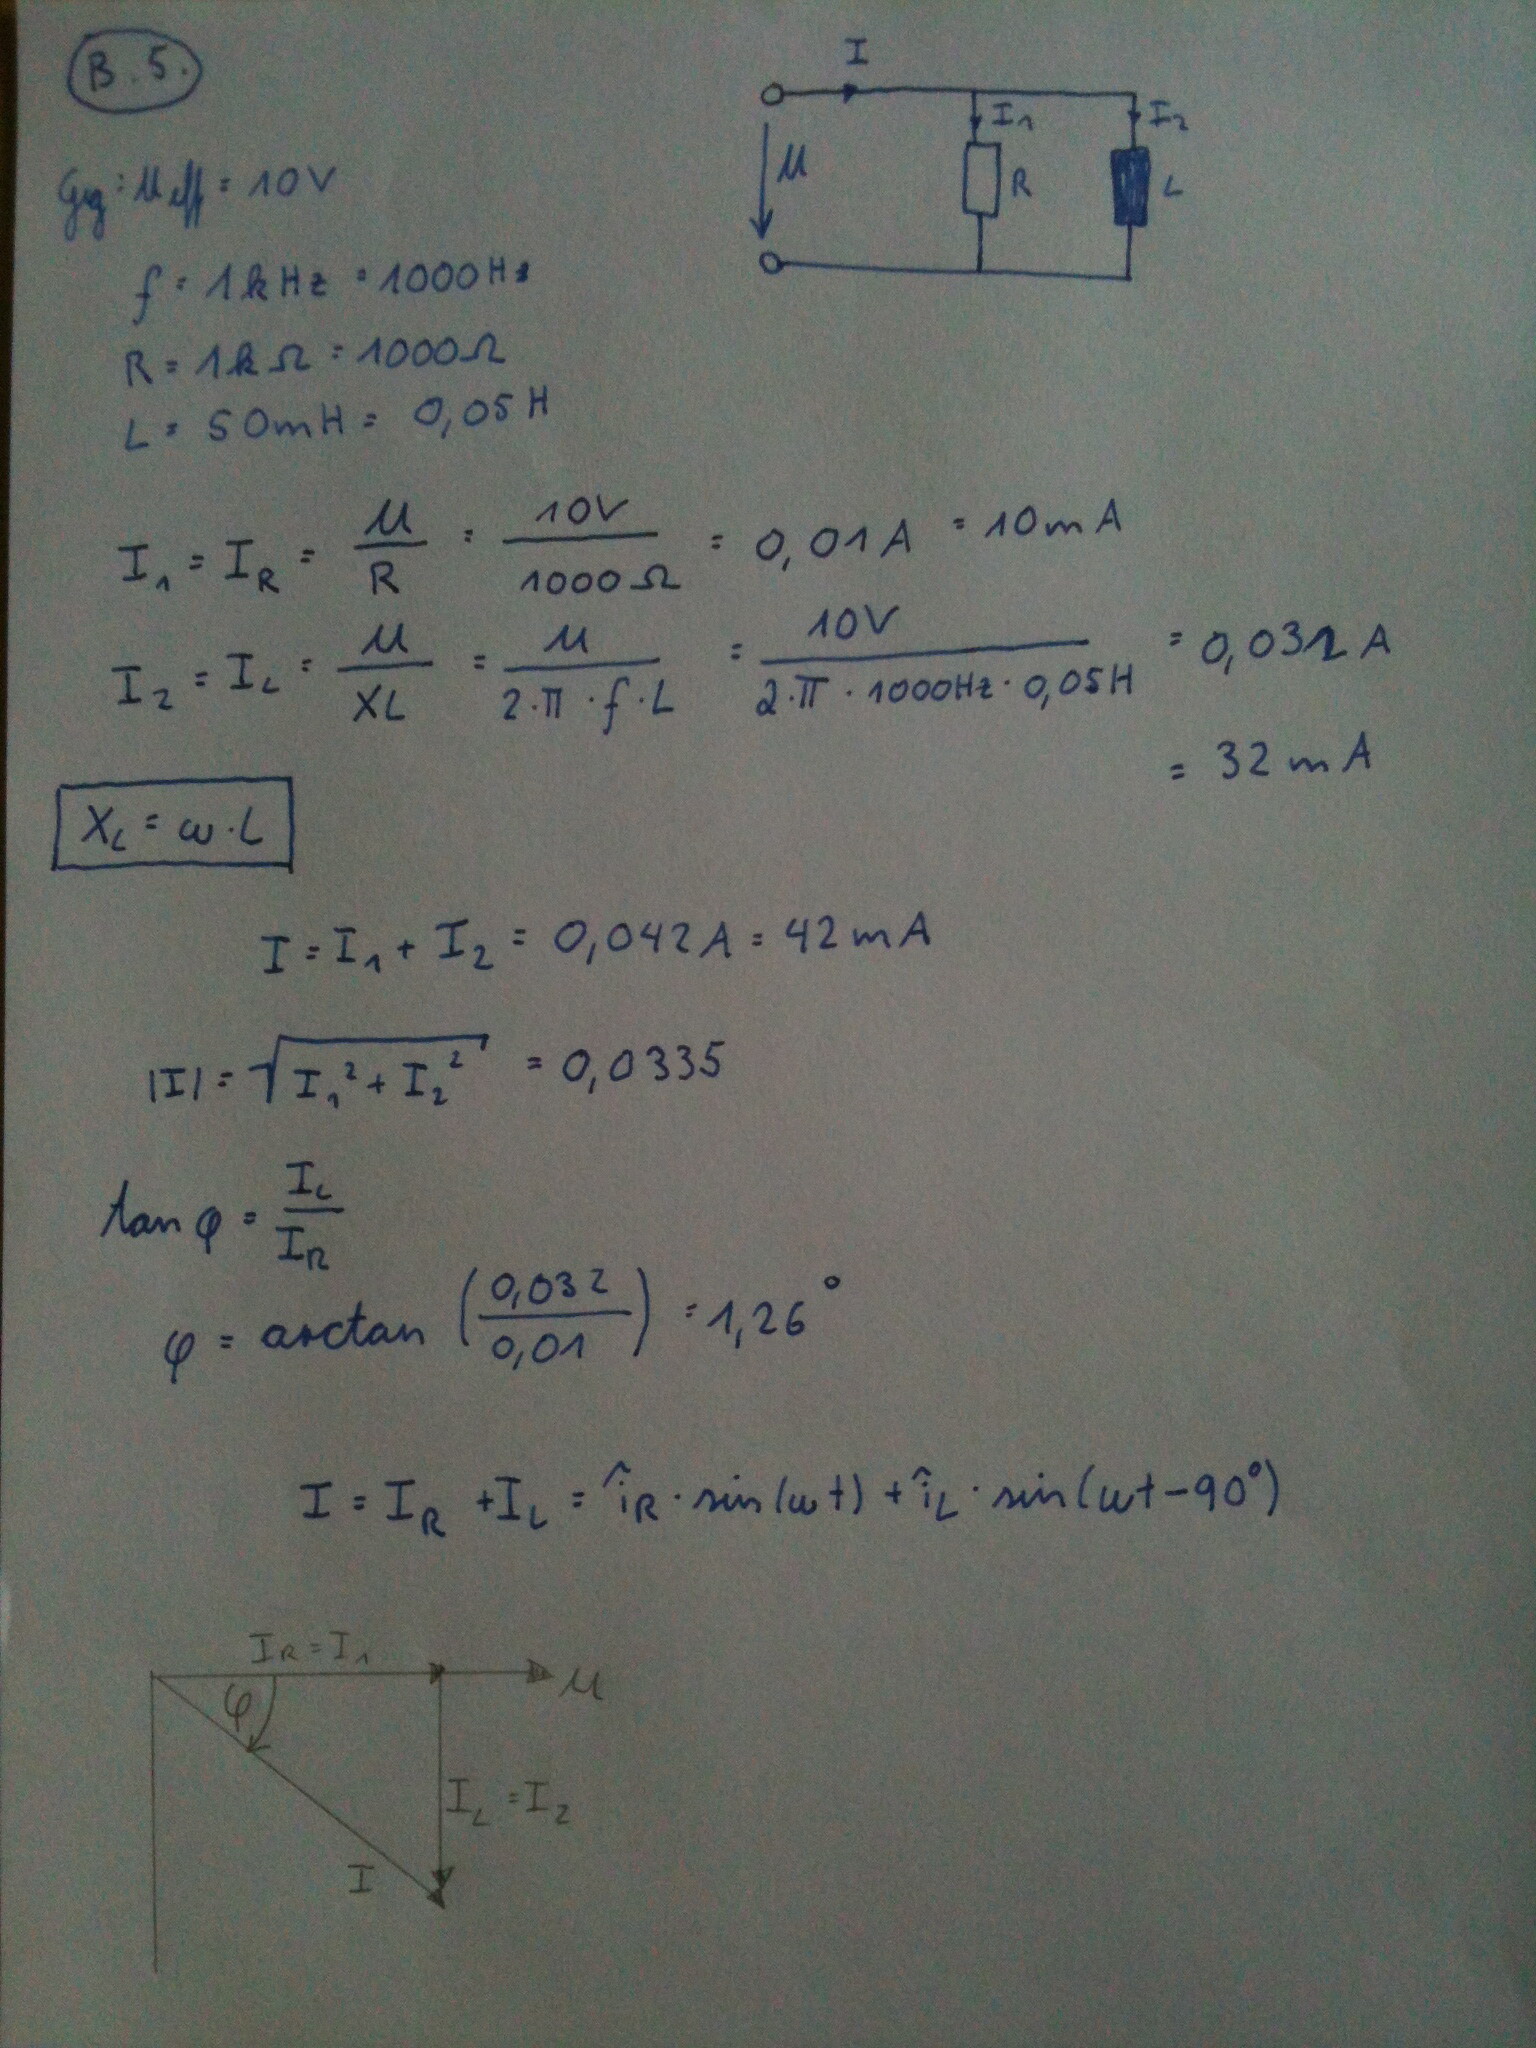 B.5.
I
I₁
I₂
U
R
L
Geg: Ueff = 10V
f = 1kHz = 1000Hz
R = 1kΩ = 1000Ω
L = 50mH = 0,05H
I₁ = I_R = U/R = 10V/1000Ω = 0,01A = 10mA
I₂ = I_L = U/XL = U/(2·π·f·L) = 10V/(2·π·1000Hz·0,05H) = 0,032A
= 32mA
X_L = ω·L
I = I₁ + I₂ = 0,042A = 42mA
|I| = √(I₁² + I₂²) = 0,0335
tan φ = I_L/I_R
φ = arctan (0,032/0,01) = 1,26°
I = I_R + I_L = î_R · sin(ωt) + î_L · sin(ωt-90°)
I_R = I₁
U
φ
I_L = I₂
I